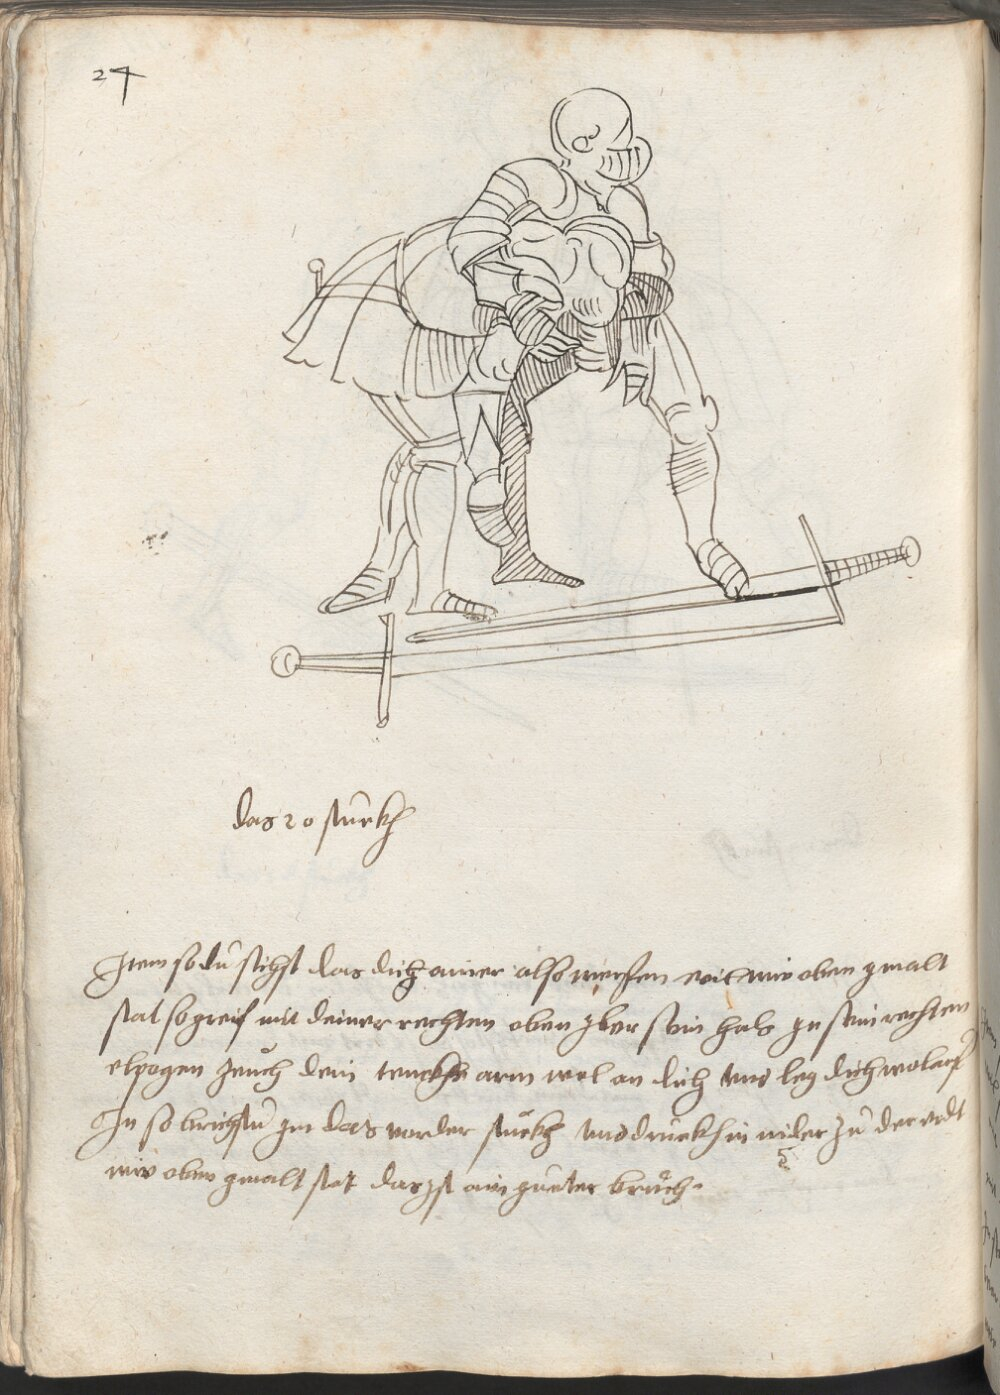 24
das 20 stuckh
Item so du sichst das dich ainer also werffen wil wie oben gmalt
stat so greif mit deiner rechten oben yber sein hals in sein rechten
elpogen zeuch dein tenckhn arm wol an dich und leg dich wol auf
In so brichstu im das vorder stuckh und druckh in nider zu der erdt
wie oben gmalt stet das ist ain gueter bruch.